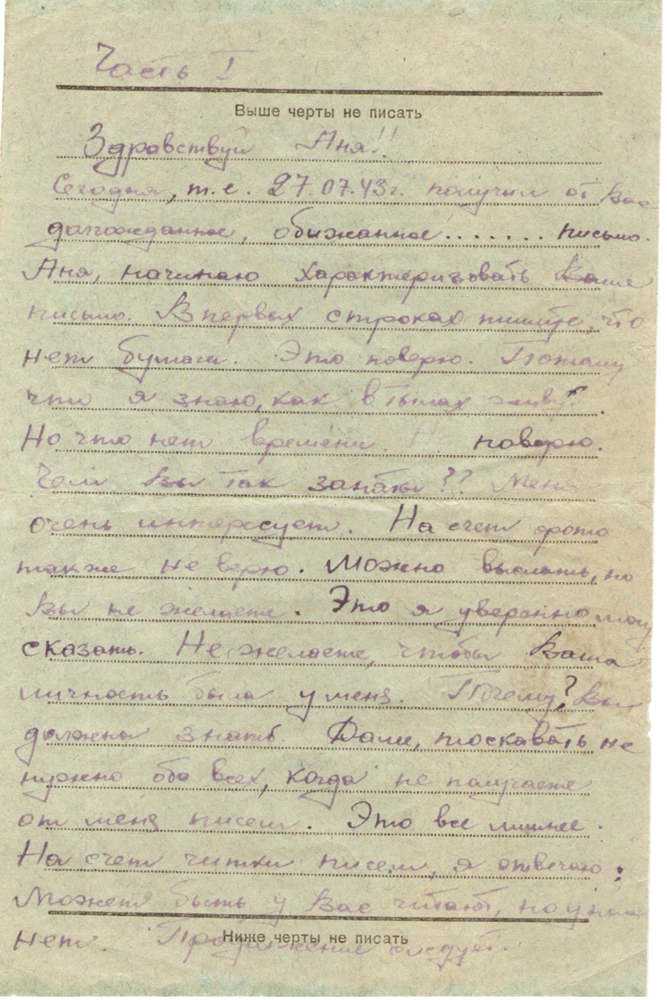 Часть I
Выше черты не писать
Здравствуй Аня!!
Сегодня, т.е. 27.07.43г. получил от Вас
долгожданное, обижанное........ письмо.
Аня, начинаю характеризовать Ваше
письмо. В первых строках пишите, что
нет бумаги. Это поверю. Потому
что я знаю, как в тылах живут.
Но что нет времени. Не поверю.
Чем Вы так заняты?? Меня
очень интересует. На счет фото
также не верю. Можно выслать, но
Вы не желаете. Это я уверенно могу
сказать. Не желаете, чтобы Ваша
личность была у меня. Почему? Вы
должны знать. Дали, тосковать не
нужно обо всех, когда не получаете
от меня писем. Это все лишнее.
На счет читки писем, я отвечаю:
Может быть у Вас читают, но у нас
нет. Продолжение следует.
Ниже черты не писать